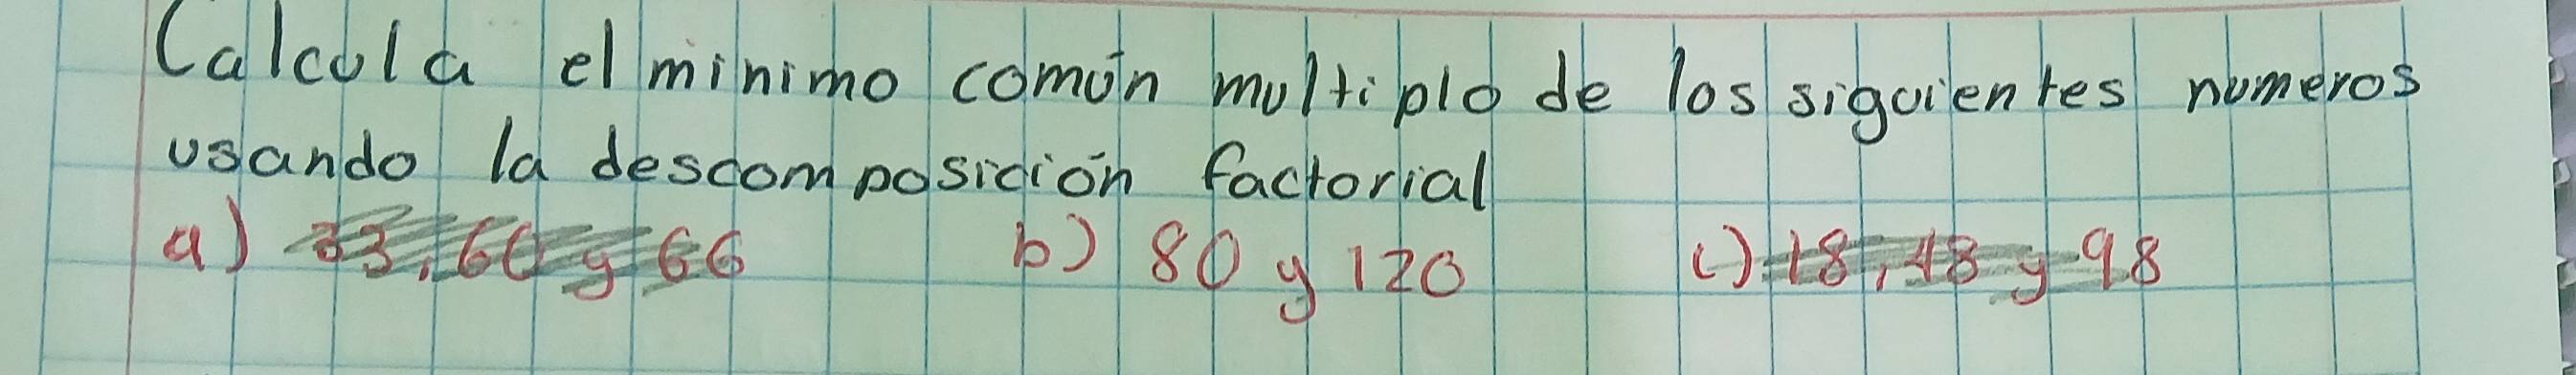 Calcula el minimo común multiplo de los siguientes numeros
usando la descomposición factorial
a) 33, 60 y 66 b) 80 y 120 c) 18, 48 y 98